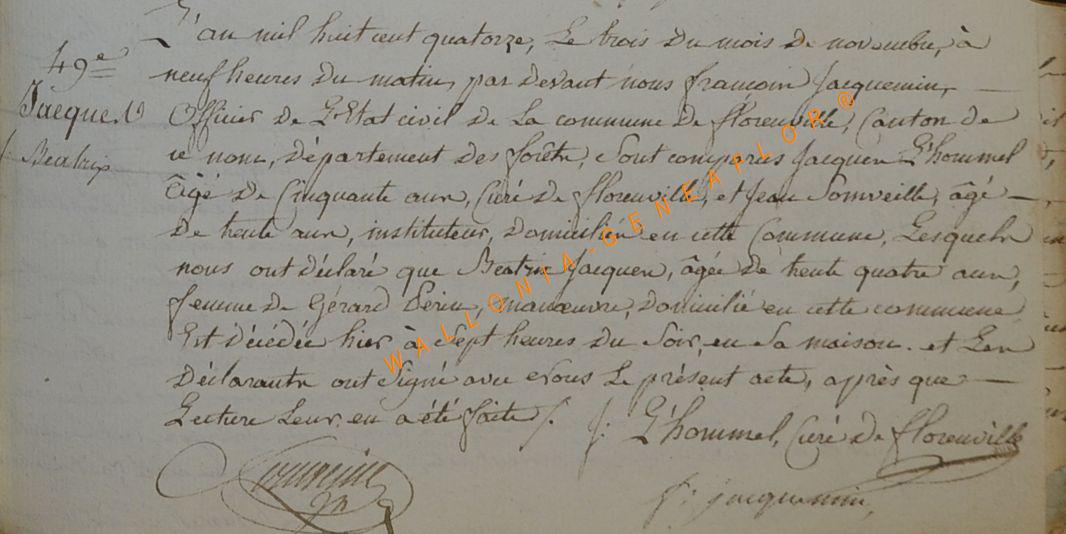 L'an mil huit cent quatorze, Le trois du mois de novembre, à
49e
neuf heures du matin, par devant nous françois Jacquemin,
Jacques
Officier de L'Etat civil de La commune de florenville, Canton de
Beatrix
ce nom, département des forêts, sont comparus Jacques L'hommel
âgé de Cinquante ans, Curé de florenville, et Jean Somveille, âgé
de trente ans, instituteur, domiciliés en cette Commune, Lesquels
nous ont déclaré que Beatrix Jacques, âgée de trente quatre ans,
femme de Gérard Périn, manoeuvre, domicilié en cette commune
Est décédée hier à Sept heures du Soir, en Sa maison. et Les
Déclarants ont Signé avec Nous Le présent acte, après que
Lecture Leur en a été faite /.
J: L'hommel, Curé de florenville
f: jacquemin,
WALLONIA-GENEAPLOR®